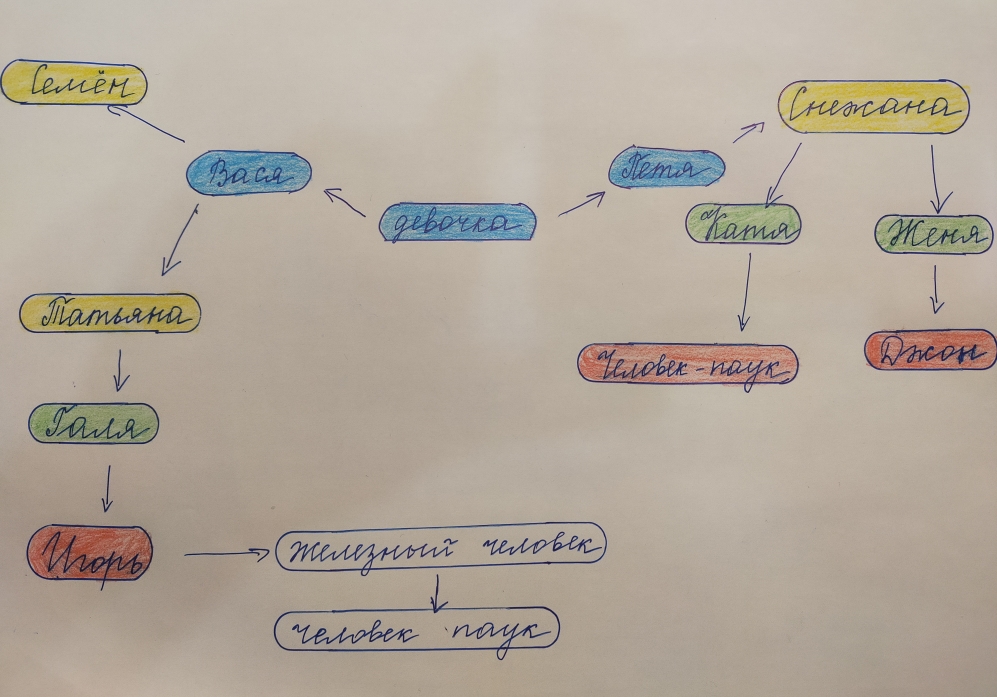 Семён
Снежана
Вася
Петя
девочка
Катя
Женя
Татьяна
Человек-паук
Джон
Галя
Игорь
железный человек
человек паук